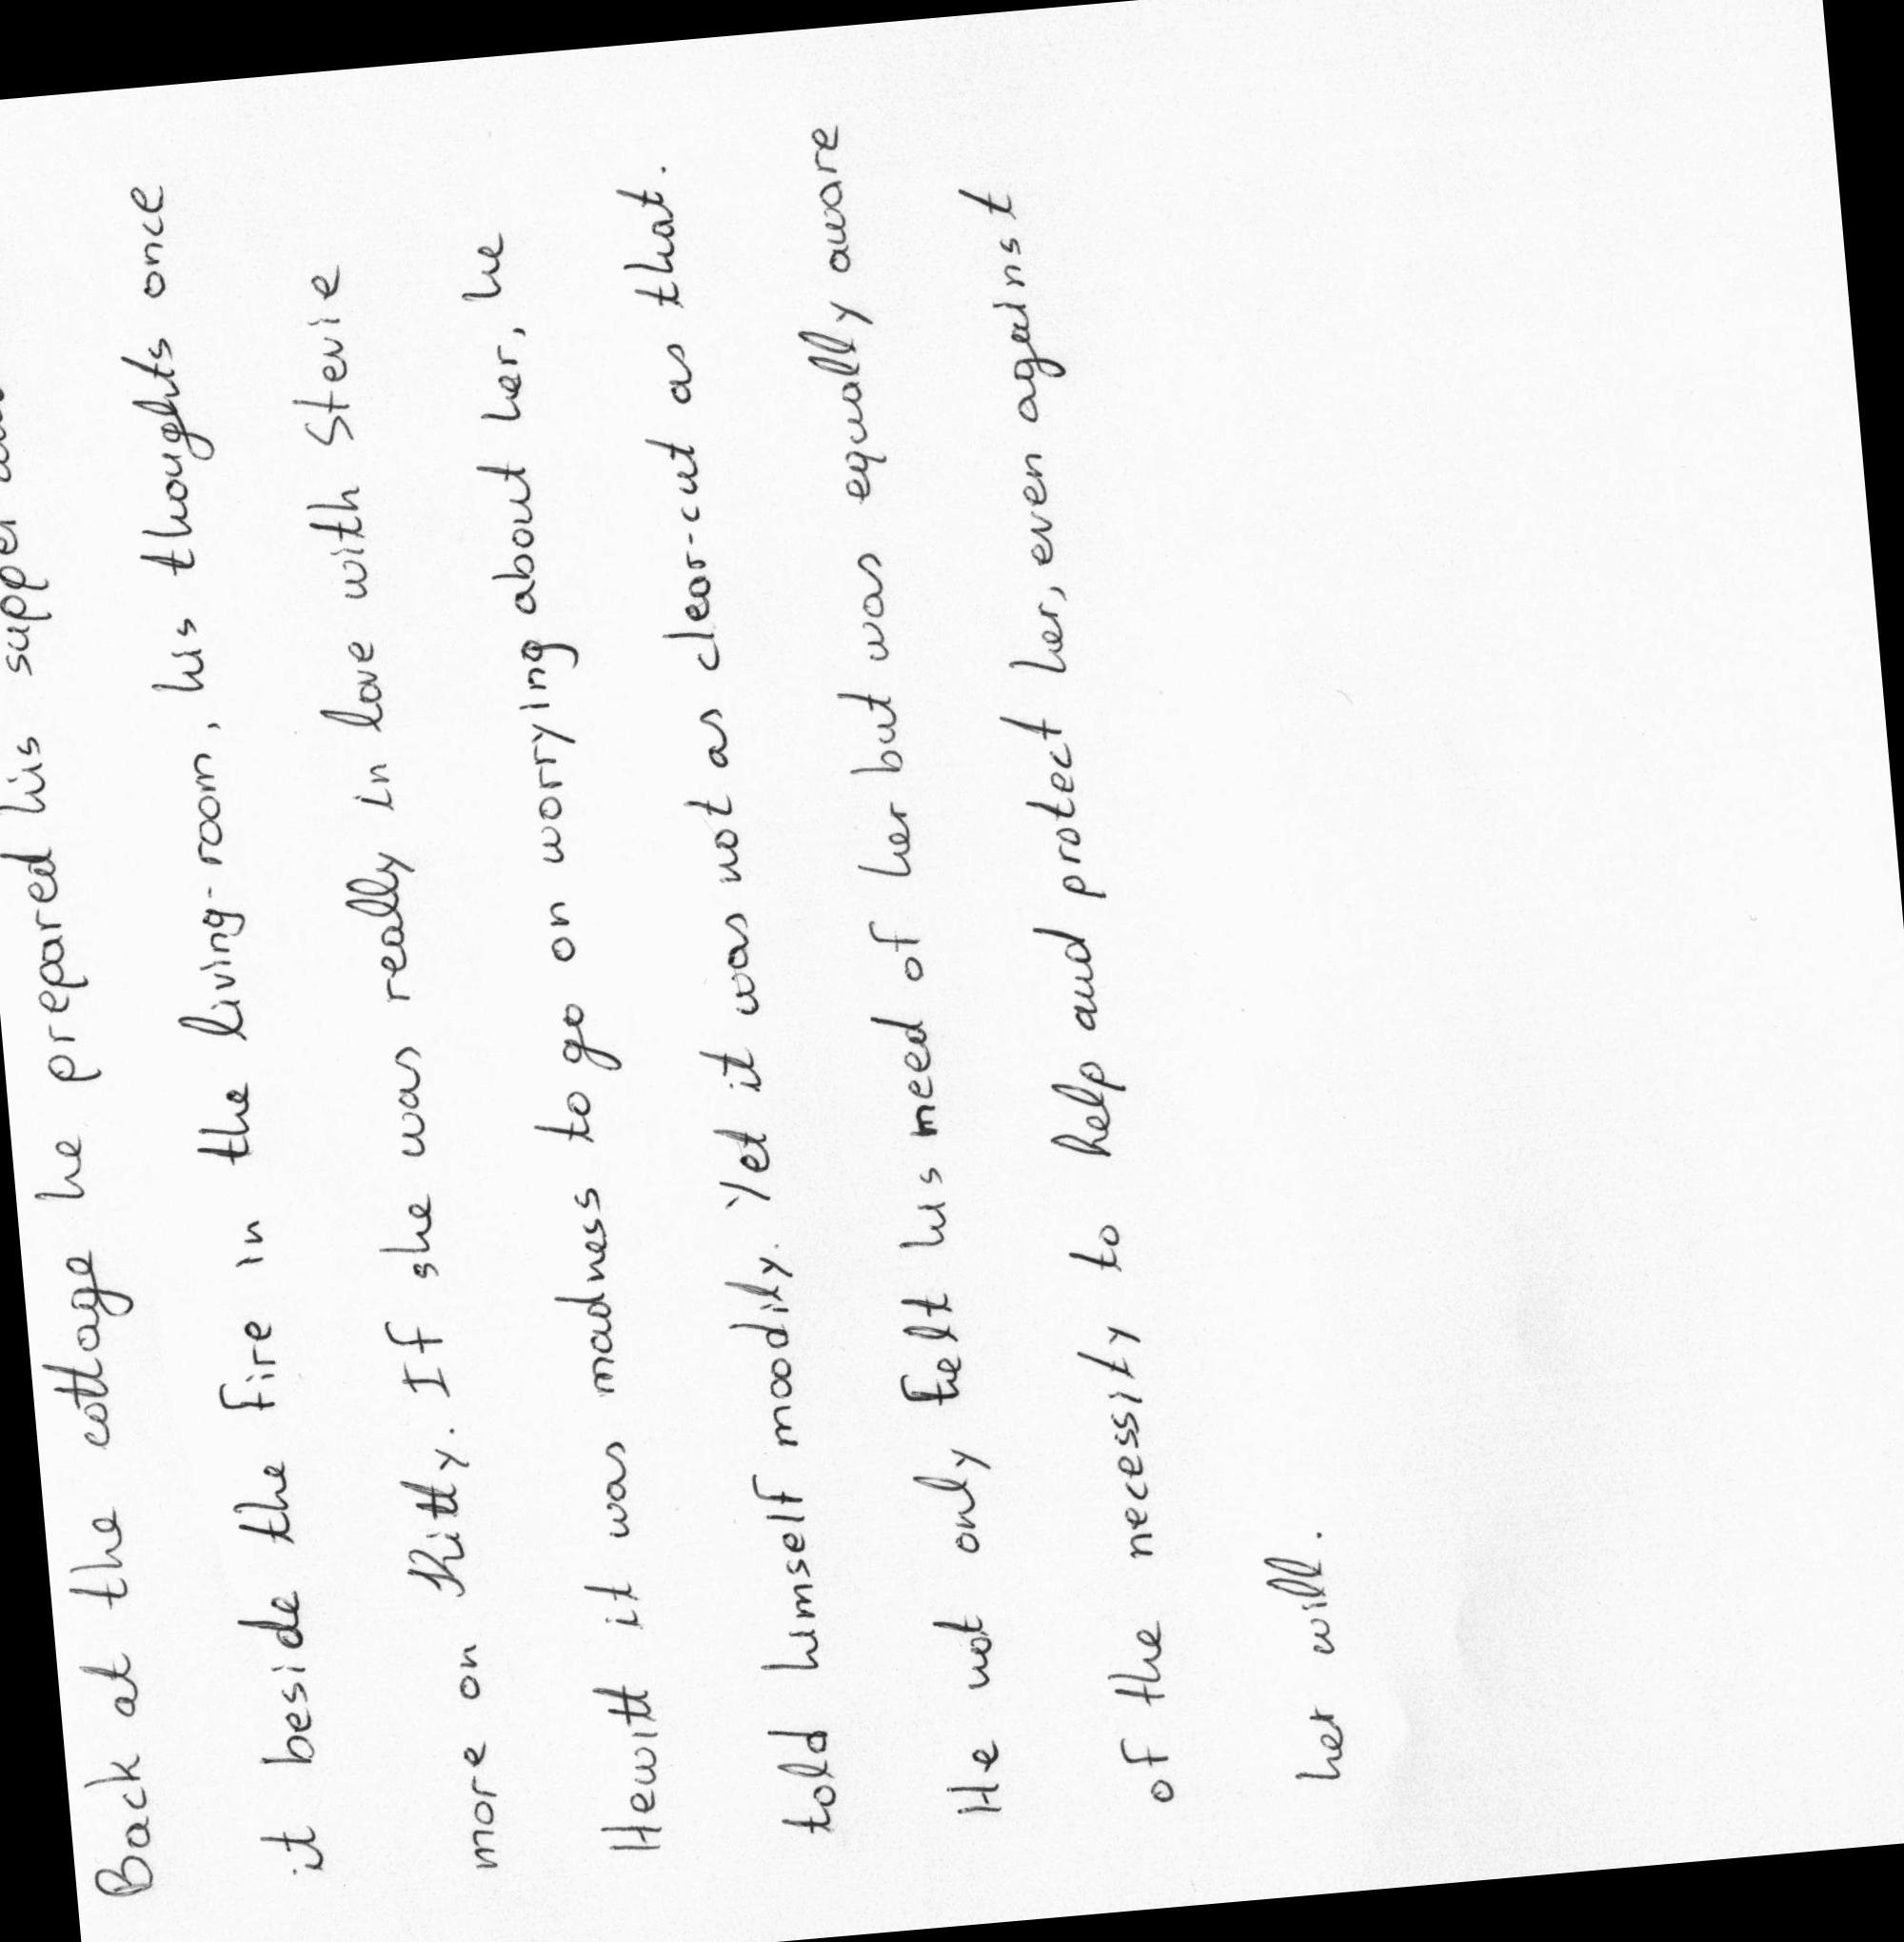 Back at the cottage he prepared his supper
it beside the fire in the living-room, his thoughts once
more on Kitty. If she was really in love with Stevie
Hewitt it was madness to go on worrying about her, he
told himself moodily. Yet it was not as clear-cut as that.
He not only felt his need of her but was equally aware
of the necessity to help and protect her, even against
her will.